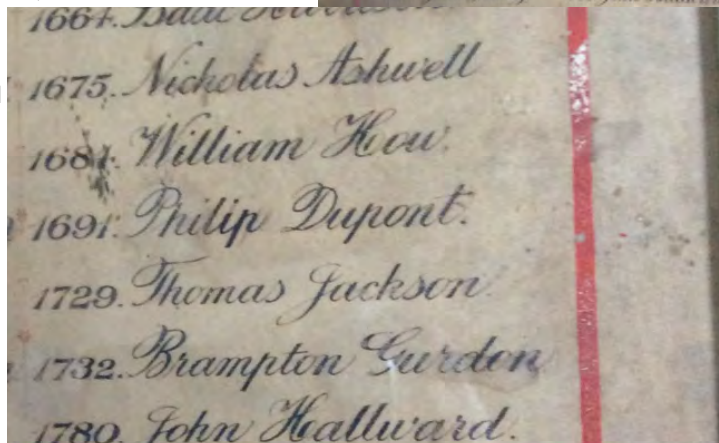 1664. Isaac
1675. Nicholas Ashwell
1681. William How.
1691. Philip Dupont.
1729. Thomas Jackson
1732. Brampton Gurdon
1780. John Hallward.